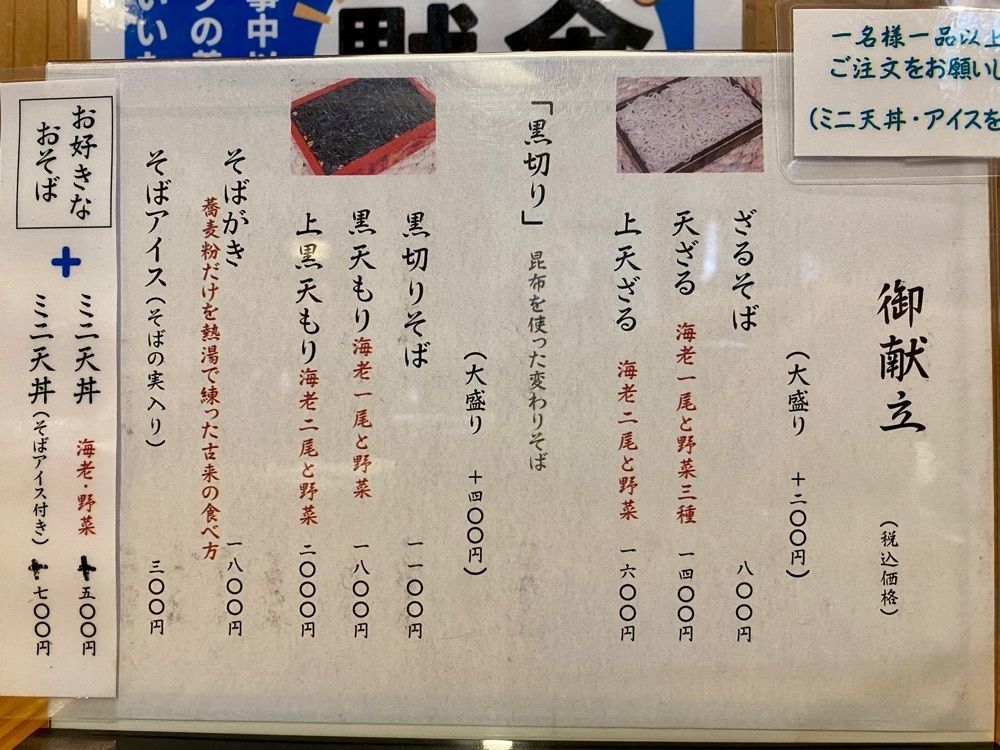 一名様一品以上
ご注文をお願いし
(ミニ天丼・アイスを
御献立
(税込価格)
(大盛り +二〇〇円)
ざるそば 八〇〇円
天ざる 海老一尾と野菜三種 一四〇〇円
上天ざる 海老二尾と野菜 一六〇〇円
「黒切り」 昆布を使った変わりそば
(大盛り +四〇〇円)
黒切りそば 一一〇〇円
黒天もり 海老一尾と野菜 一八〇〇円
上黒天もり 海老二尾と野菜 二〇〇〇円
そばがき 一八〇〇円
蕎麦粉だけを熱湯で練った古来の食べ方
そばアイス(そばの実入り) 三〇〇円
お好きな
おそば
+
ミニ天丼 海老・野菜 +五〇〇円
ミニ天丼(そばアイス付き) +七〇〇円